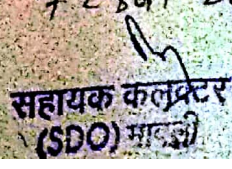 सहायक कलक्टर
(SDO) मावली